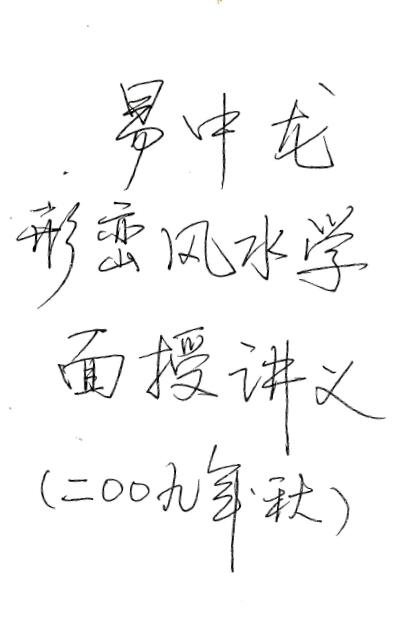 易中龙
形峦风水学
面授讲义
(二〇〇九年·秋)